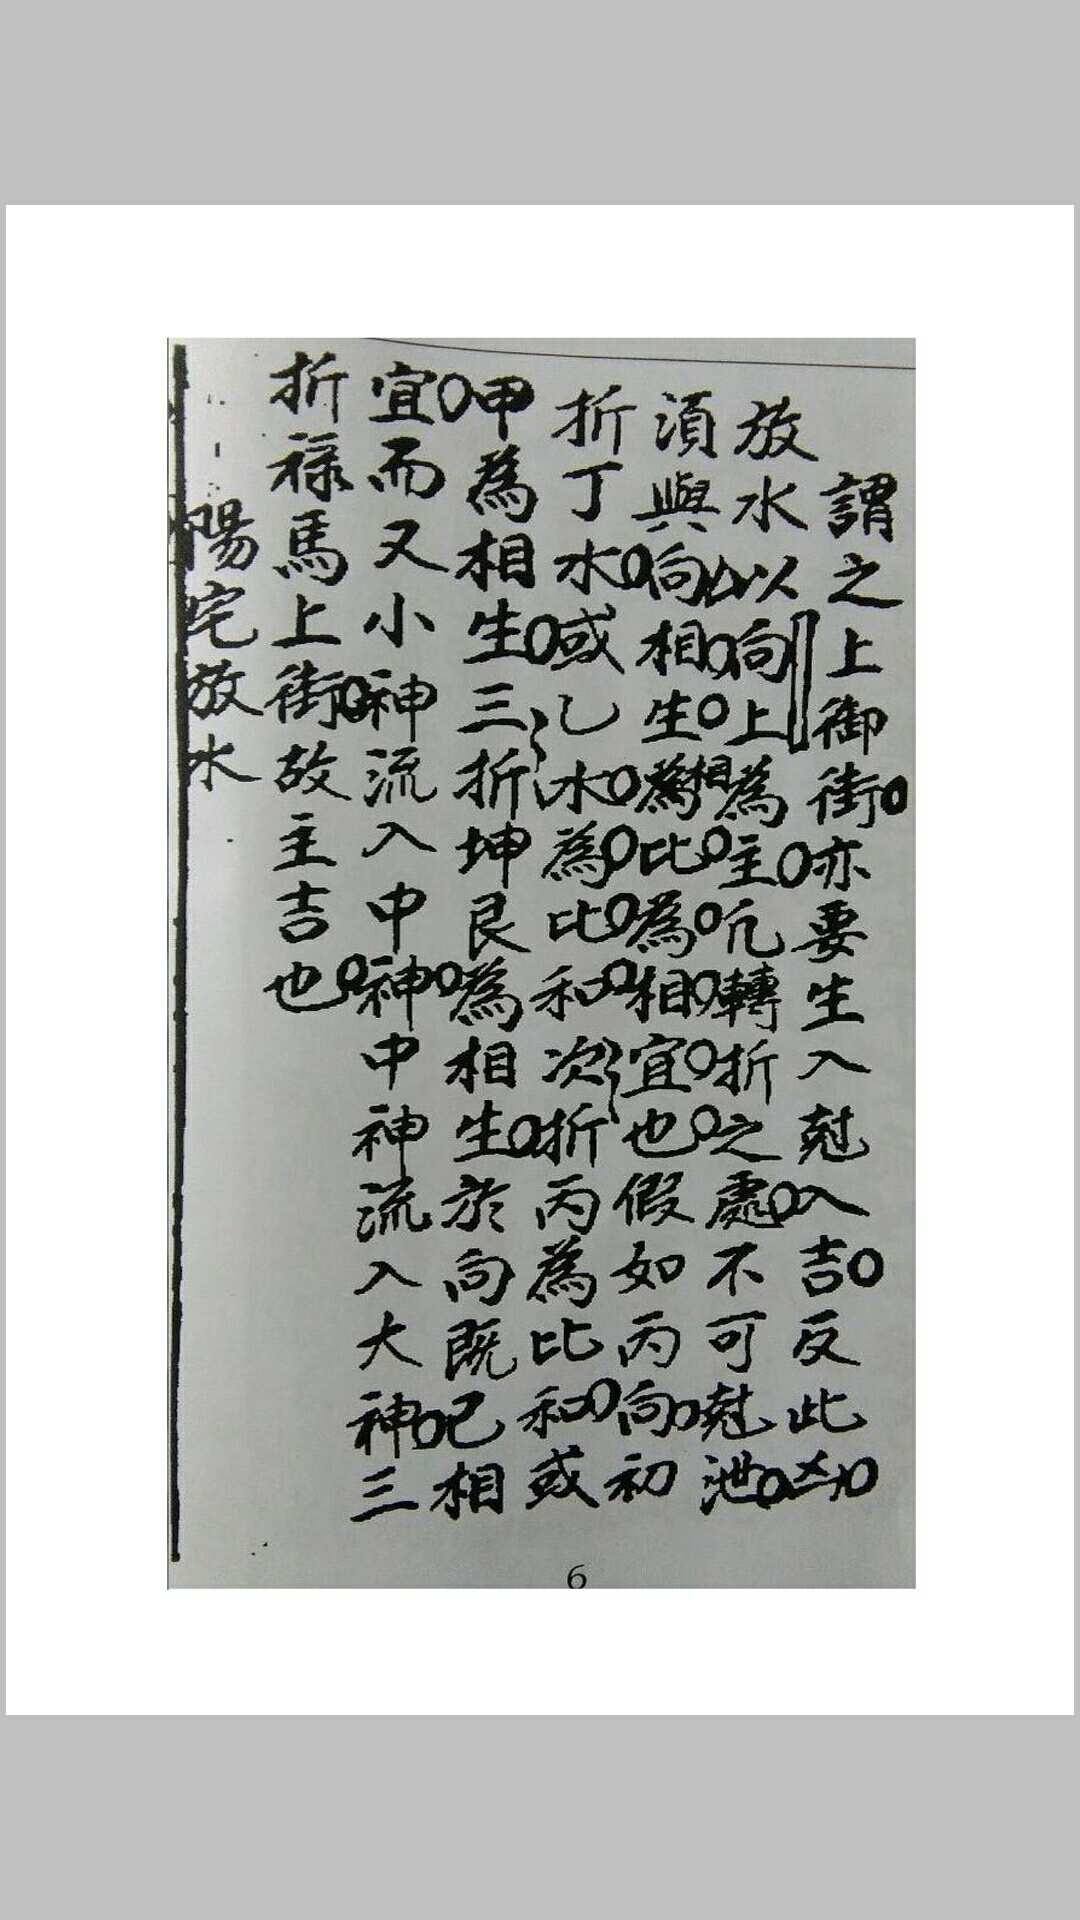 謂之上御街亦要生入尅入吉反此凶
放水以向上為主凢轉折之處不可尅泄
須與向相生為相比為相宜也假如丙向初
折丁水或乙水為比和次折丙為比和或
甲為相生三折坤艮為相生於向既已相
宜而又小神流入中神中神流入大神三
折祿馬上街故主吉也
陽宅放水
6